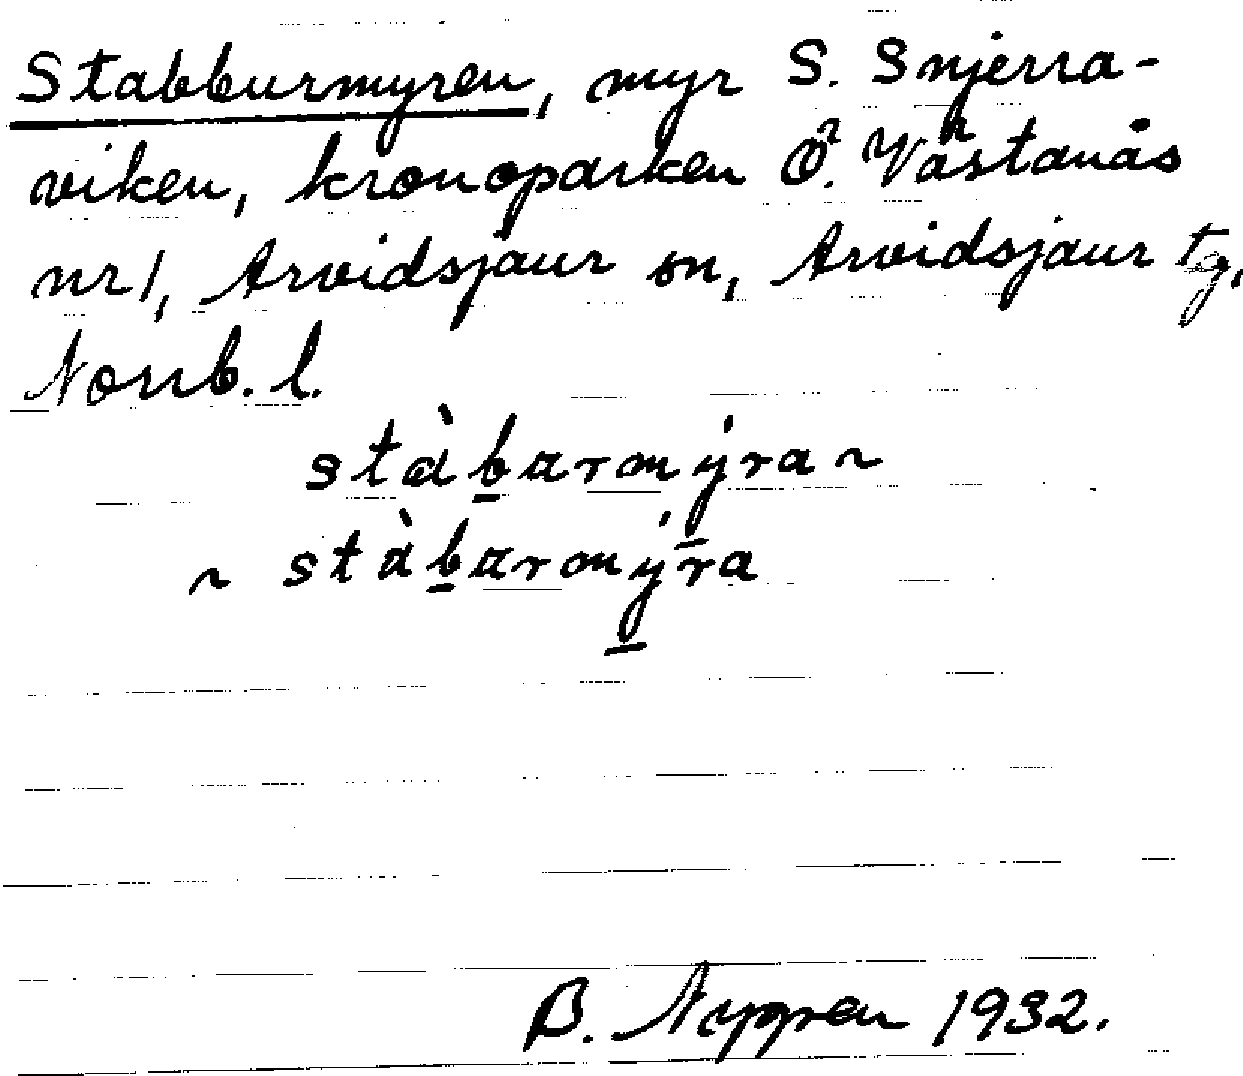 Stabburmyren, myr S. Snjerra-
viken, kronoparken Ö. Västanås
nr 1, Arvidsjaur sn, Arvidsjaur tg,
Norrb. l.
stàbarmýra ~
~ stàbarmýra
B. Nygren 1932.